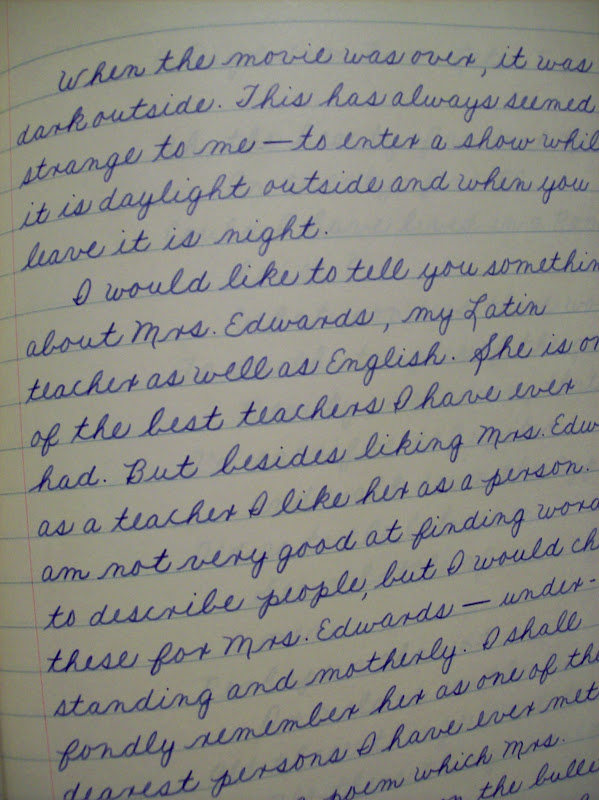 When the movie was over, it was
dark outside. This has always seemed
strange to me — to enter a show whil
it is daylight outside and when you
leave it is night.
I would like to tell you somethin
about Mrs. Edwards, my Latin
teacher as well as English. She is on
of the best teachers I have ever
had. But besides liking Mrs. Edw
as a teacher I like her as a person.
am not very good at finding word
to describe people, but I would ch
these for Mrs. Edwards — under-
standing and motherly. I shall
fondly remember her as one of the
dearest persons I have ever met
poem which Mrs.
the bulle